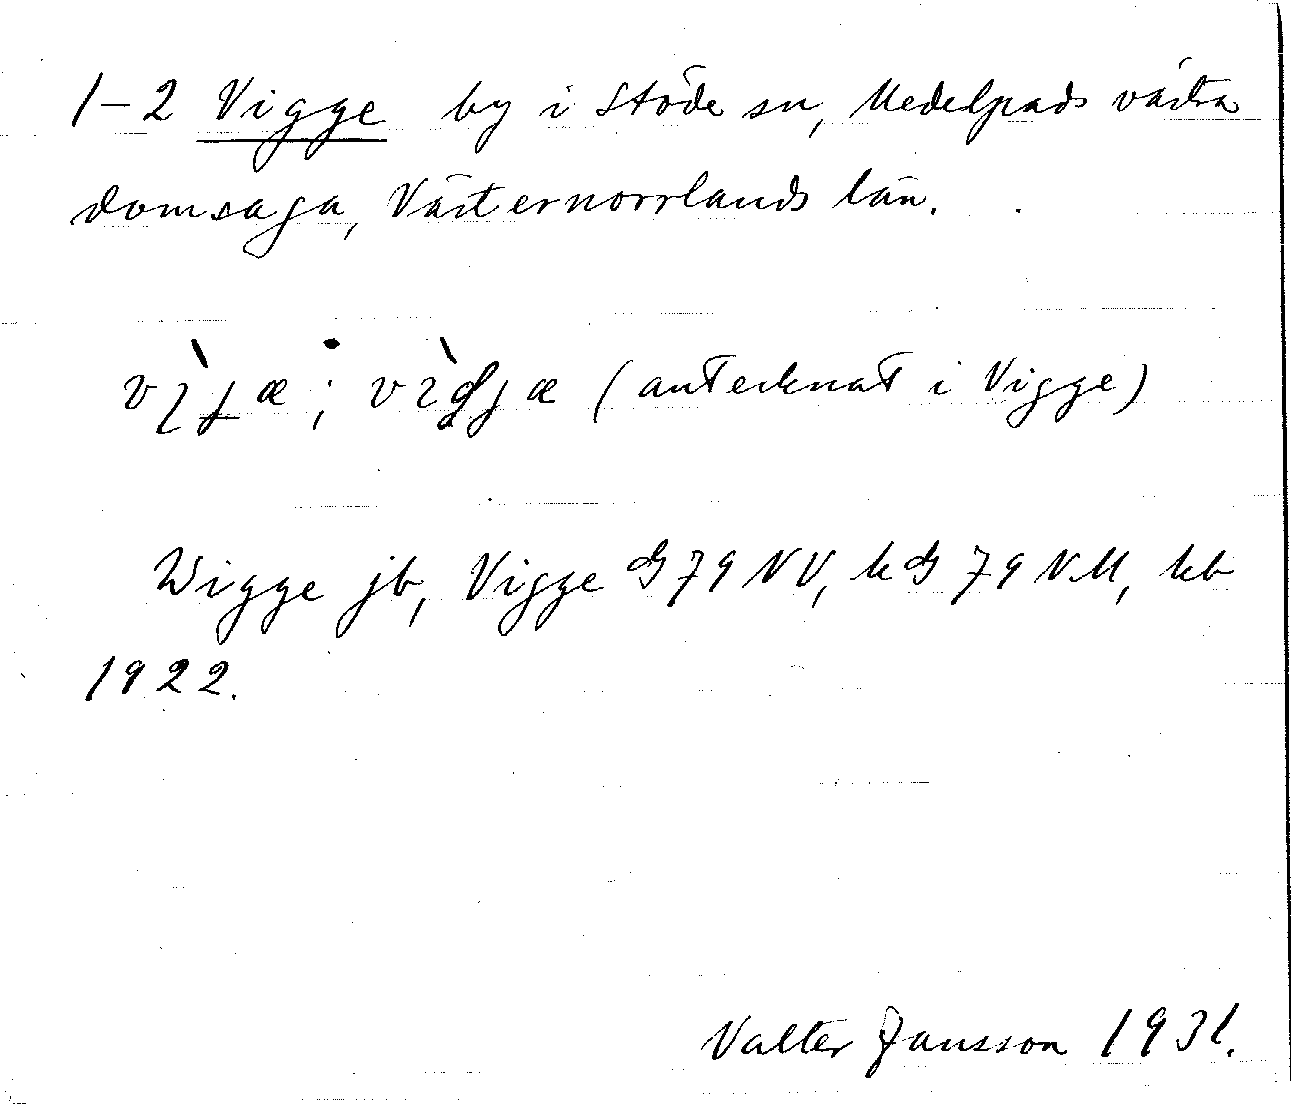 1–2 Vigge by i Stöde sn, Medelpads västra
domsaga, Västernorrlands län.
(antecknat i Vigge)
Wigge jb, Vigge GS 79 NV, k GS 79 NM, kb
1922.
Valter Jansson 1931.